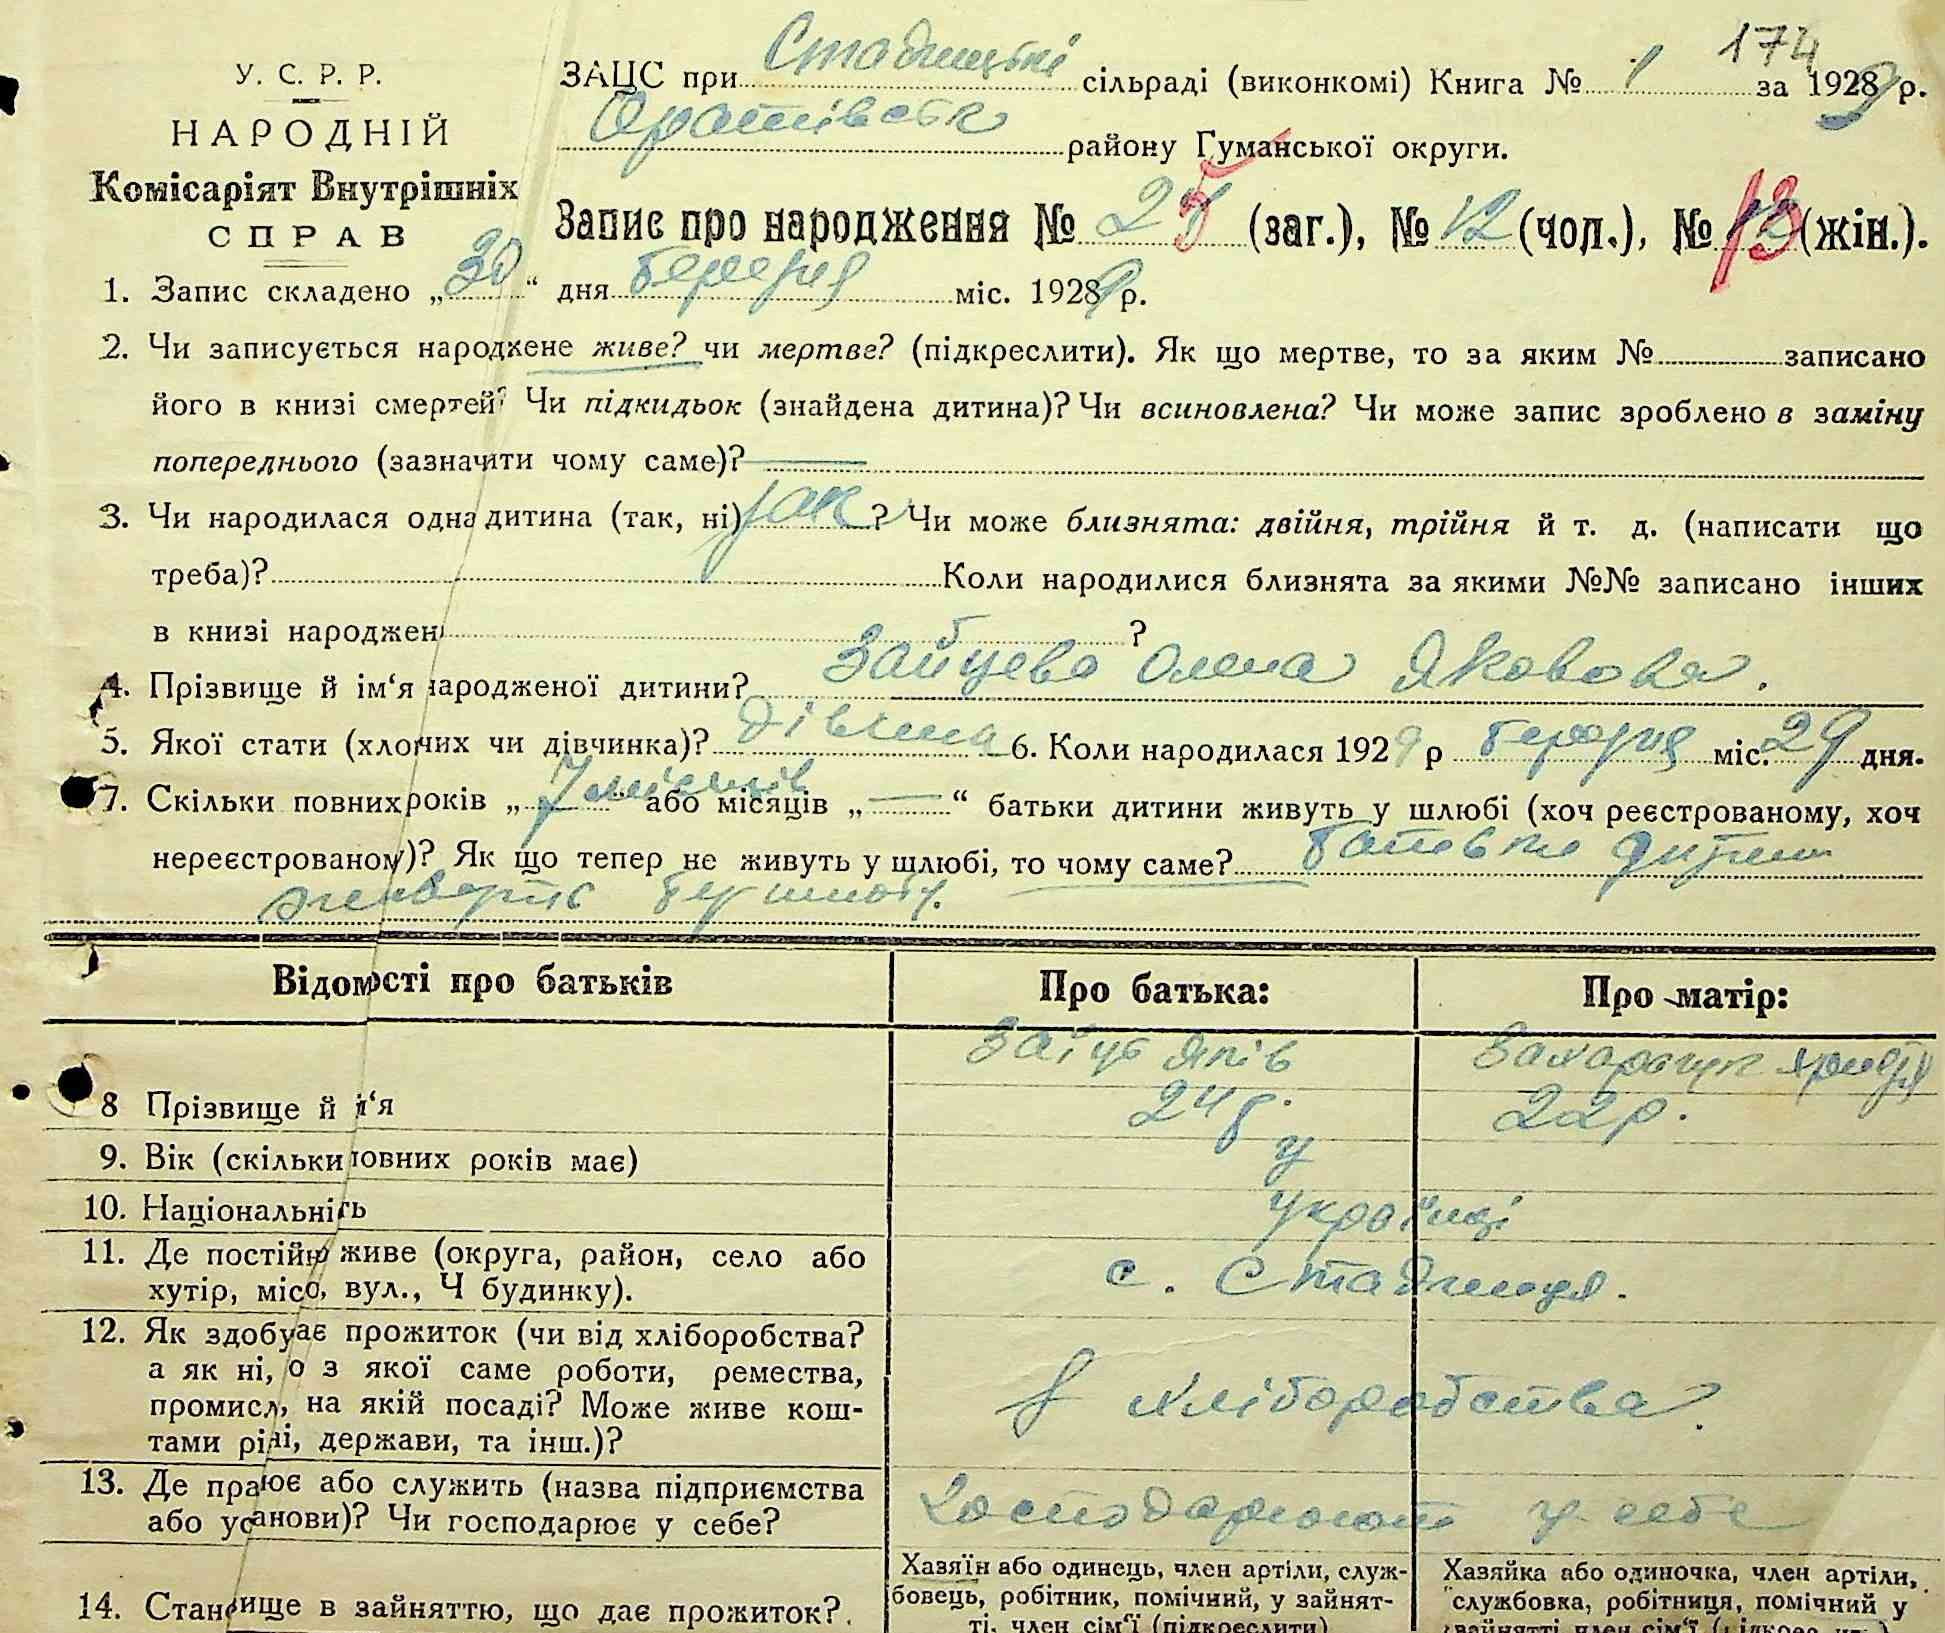 174
У. С. Р. Р.
НАРОДНІЙ
Комісаріят Внутрішніх
СПРАВ
ЗАЦС при Стадницькі сільраді (виконкомі) Книга № 1 за 1929 р.
Оратівськ району Гуманської округи.
Запис про народження № 25 (заг.), № 12 (чол.), № 13 (жін.).
1. Запис складено „30“ дня березня міс. 1929 р.
2. Чи записується народжене живе? чи мертве? (підкреслити). Як що мертве, то за яким № записано
його в книзі смертей? Чи підкидьок (знайдена дитина)? Чи всиновлена? Чи може запис зроблено в заміну
попереднього (зазначити чому саме)? —
3. Чи народилася одна дитина (так, ні) так ? Чи може близнята: двійня, трійня й т. д. (написати що
треба)? Коли народилися близнята за якими №№ записано інших
в книзі народжен ?
4. Прізвище й ім‘я народженої дитини? Зайцева Олена Яковова.
5. Якої стати (хлопчих чи дівчинка)? дівчина 6. Коли народилася 1929 р березня міс. 29 дня.
7. Скільки повних років „7 місяців“ або місяців „—“ батьки дитини живуть у шлюбі (хоч реєстрованому, хоч
нереєстрованому)? Як що тепер не живуть у шлюбі, то чому саме? батьки дитини
живуть в шлюбу.
Відомості про батьків Про батька: Про матір:
8 Прізвище й ім‘я Заїць Яків Захарчук
9. Вік (скільки повних років має) 24 р. 22 р.
у
10. Національність українці
11. Де постійно живе (округа, район, село або
хутір, місто, вул., Ч будинку). с. Стадниця.
12. Як здобуває прожиток (чи від хліборобства?
а як ні, то з якої саме роботи, ремества,
промисл, на якій посаді? Може живе кош-
тами рідні, держави, та інш.)? з хліборобства.
13. Де працює або служить (назва підприємства
або установи)? Чи господарює у себе? господарюють у себе
14. Становище в зайняттю, що дає прожиток?
Хазяїн або одинець, член артіли, служ-
бовець, робітник, помічний, у зайнят-
ті, член сім‘ї (підкреслити)
Хазяйка або одиночка, член артіли,
службовка, робітниця, помічний у
зайнятті член сім‘ї